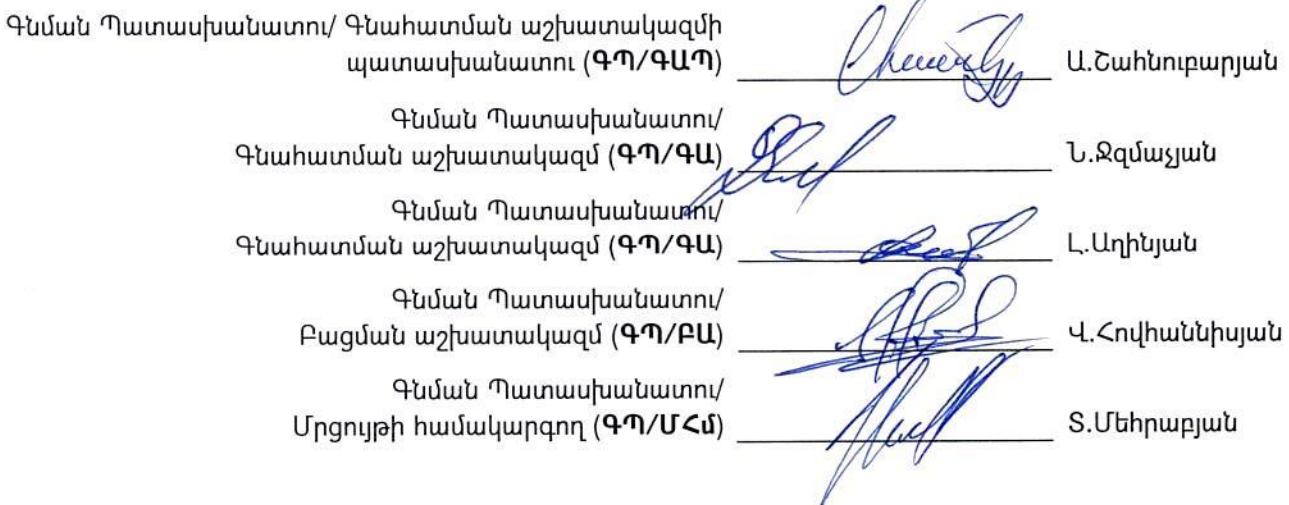 Գնման Պատասխանատու/ Գնահատման աշխատակազմի
պատասխանատու (ԳՊ/ԳԱՊ) Ա.Շահնուբարյան
Գնման Պատասխանատու/
Գնահատման աշխատակազմ (ԳՊ/ԳԱ) Ն.Ջզմաչյան
Գնման Պատասխանատու/
Գնահատման աշխատակազմ (ԳՊ/ԳԱ) Լ.Աղինյան
Գնման Պատասխանատու/
Բացման աշխատակազմ (ԳՊ/ԲԱ) Վ.Հովհաննիսյան
Գնման Պատասխանատու/
Մրցույթի համակարգող (ԳՊ/ՄՀմ) Տ.Մեհրաբյան